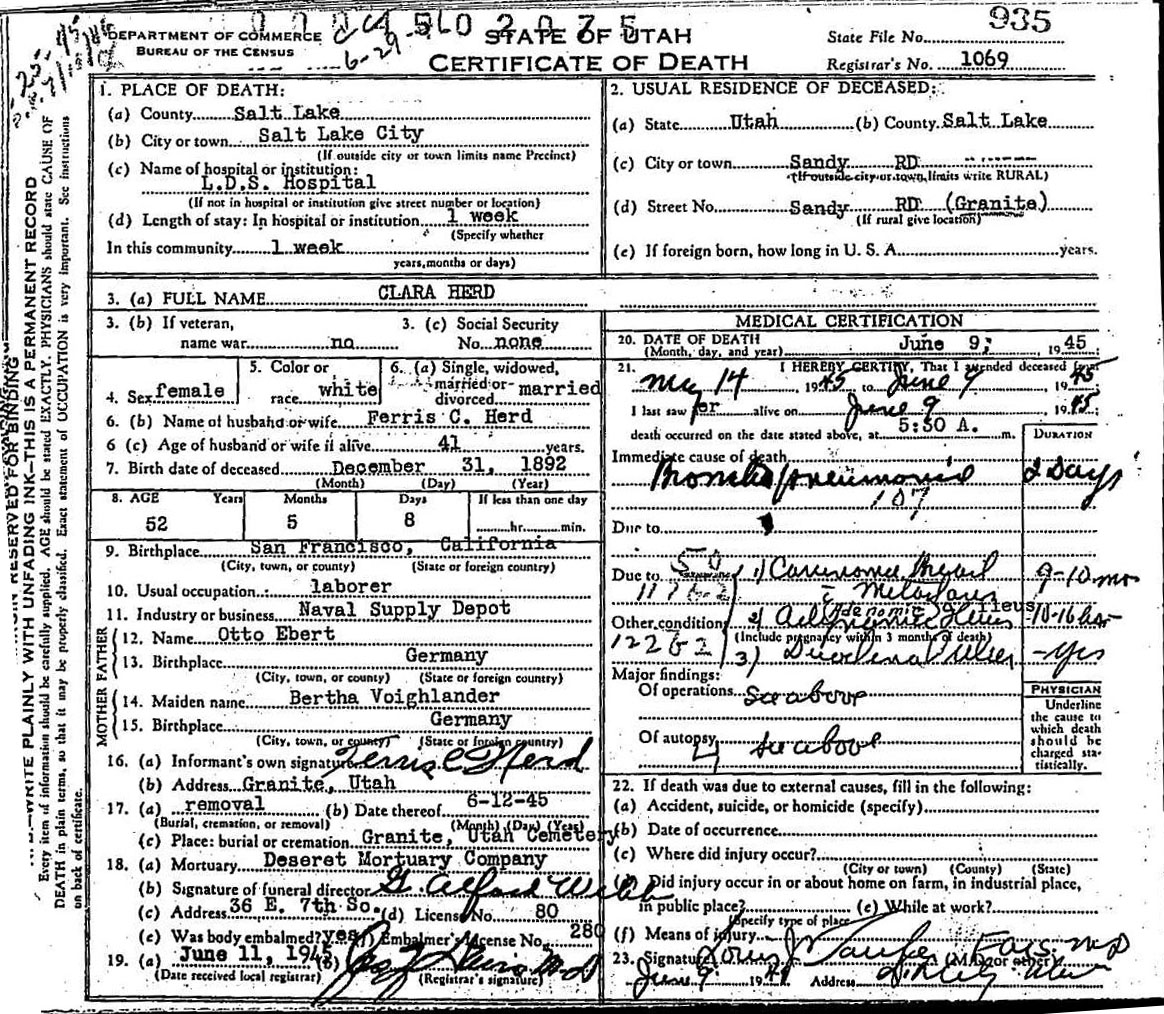 935
DEPARTMENT OF COMMERCE
BUREAU OF THE CENSUS
6-29
STATE OF UTAH
CERTIFICATE OF DEATH
State File No.
Registrar's No. 1069
WRITE PLAINLY WITH UNFADING INK—THIS IS A PERMANENT RECORD
RESERVED FOR BINDING
Every item of information should be carefully supplied. AGE should be stated EXACTLY. PHYSICIANS should state CAUSE OF
DEATH in plain terms, so that it may be properly classified. Exact statement of OCCUPATION is very important. See instructions
on back of certificate.
1. PLACE OF DEATH:
(a) County Salt Lake
(b) City or town Salt Lake City
(If outside city or town limits name Precinct)
(c) Name of hospital or institution:
L.D.S. Hospital
(If not in hospital or institution give street number or location)
(d) Length of stay: In hospital or institution 1 week
(Specify whether
In this community 1 week
years, months or days)
2. USUAL RESIDENCE OF DECEASED:
(a) State Utah (b) County Salt Lake
(c) City or town Sandy RD
(If outside city or town limits write RURAL)
(d) Street No. Sandy RD (Granite)
(If rural give location)
(e) If foreign born, how long in U. S. A. years.
3. (a) FULL NAME CLARA HERD
3. (b) If veteran,
name war no
3. (c) Social Security
No. none
4. Sex female
5. Color or
race white
6. (a) Single, widowed,
married or
divorced married
6. (b) Name of husband or wife Ferris C. Herd
6 (c) Age of husband or wife if alive 41 years.
7. Birth date of deceased December 31, 1892
(Month) (Day) (Year)
8. AGE Years Months Days If less than one day
52 5 8 hr. min.
9. Birthplace San Francisco, California
(City, town, or county) (State or foreign country)
10. Usual occupation laborer
11. Industry or business Naval Supply Depot
FATHER
12. Name Otto Ebert
13. Birthplace Germany
(City, town, or county) (State or foreign country)
MOTHER
14. Maiden name Bertha Voighlander
15. Birthplace Germany
(City, town, or county) (State or foreign country)
16. (a) Informant's own signature Ferris C Herd
(b) Address Granite, Utah
17. (a) removal (b) Date thereof 6-12-45
(Burial, cremation, or removal) (Month) (Day) (Year)
(c) Place: burial or cremation Granite, Utah Cemetery
18. (a) Mortuary Deseret Mortuary Company
(b) Signature of funeral director G. Alford
(c) Address 36 E. 7th So. (d) License No. 80
(e) Was body embalmed? yes (f) Embalmer's License No. 280
19. (a) June 11, 1945 (b) M D
(Date received local registrar) (Registrar's signature)
MEDICAL CERTIFICATION
20. DATE OF DEATH June 9, 1945
(Month, day, and year)
21. I HEREBY CERTIFY, That I attended deceased from
May 14 1945 to June 9 1945
I last saw her alive on June 9, 1945
death occurred on the date stated above, at 5:30 A. m.
DURATION
Immediate cause of death
Bronchopneumonia 2 Days
107
Due to
Due to 50 1) Carcinoma Breast 9-10 mo
Other condition 2) Adynamic ileus 10-16 hrs
(Include pregnancy within 3 months of death)
122 G 2 3) Duodenal Ulcer - yrs
Major findings:
Of operations See above
Of autopsy See above
PHYSICIAN
Underline
the cause to
which death
should be
charged sta-
tistically.
22. If death was due to external causes, fill in the following:
(a) Accident, suicide, or homicide (specify)
(b) Date of occurrence
(c) Where did injury occur?
(City or town) (County) (State)
(d) Did injury occur in or about home on farm, in industrial place,
in public place? (e) While at work?
(Specify type of place
(f) Means of injury
23. Signature (M. D. or other)
June 9 19 Address